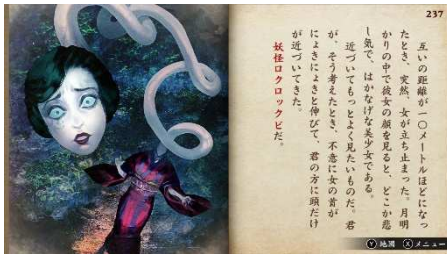 237
互いの距離が一〇メートルほどになっ
たとき、突然、女が立ち止まった。月明
かりの中で彼女の顔を見ると、どこか悲
し気で、はかなげな美少女である。
近づいてもっとよく見たいものだ。君
が、そう考えたとき、不意に女の首が
にょきにょきと伸びて、君の方に頭だけ
が近づいてきた。
妖怪ロクロックビだ。
Ⓨ地図 Ⓧメニュー